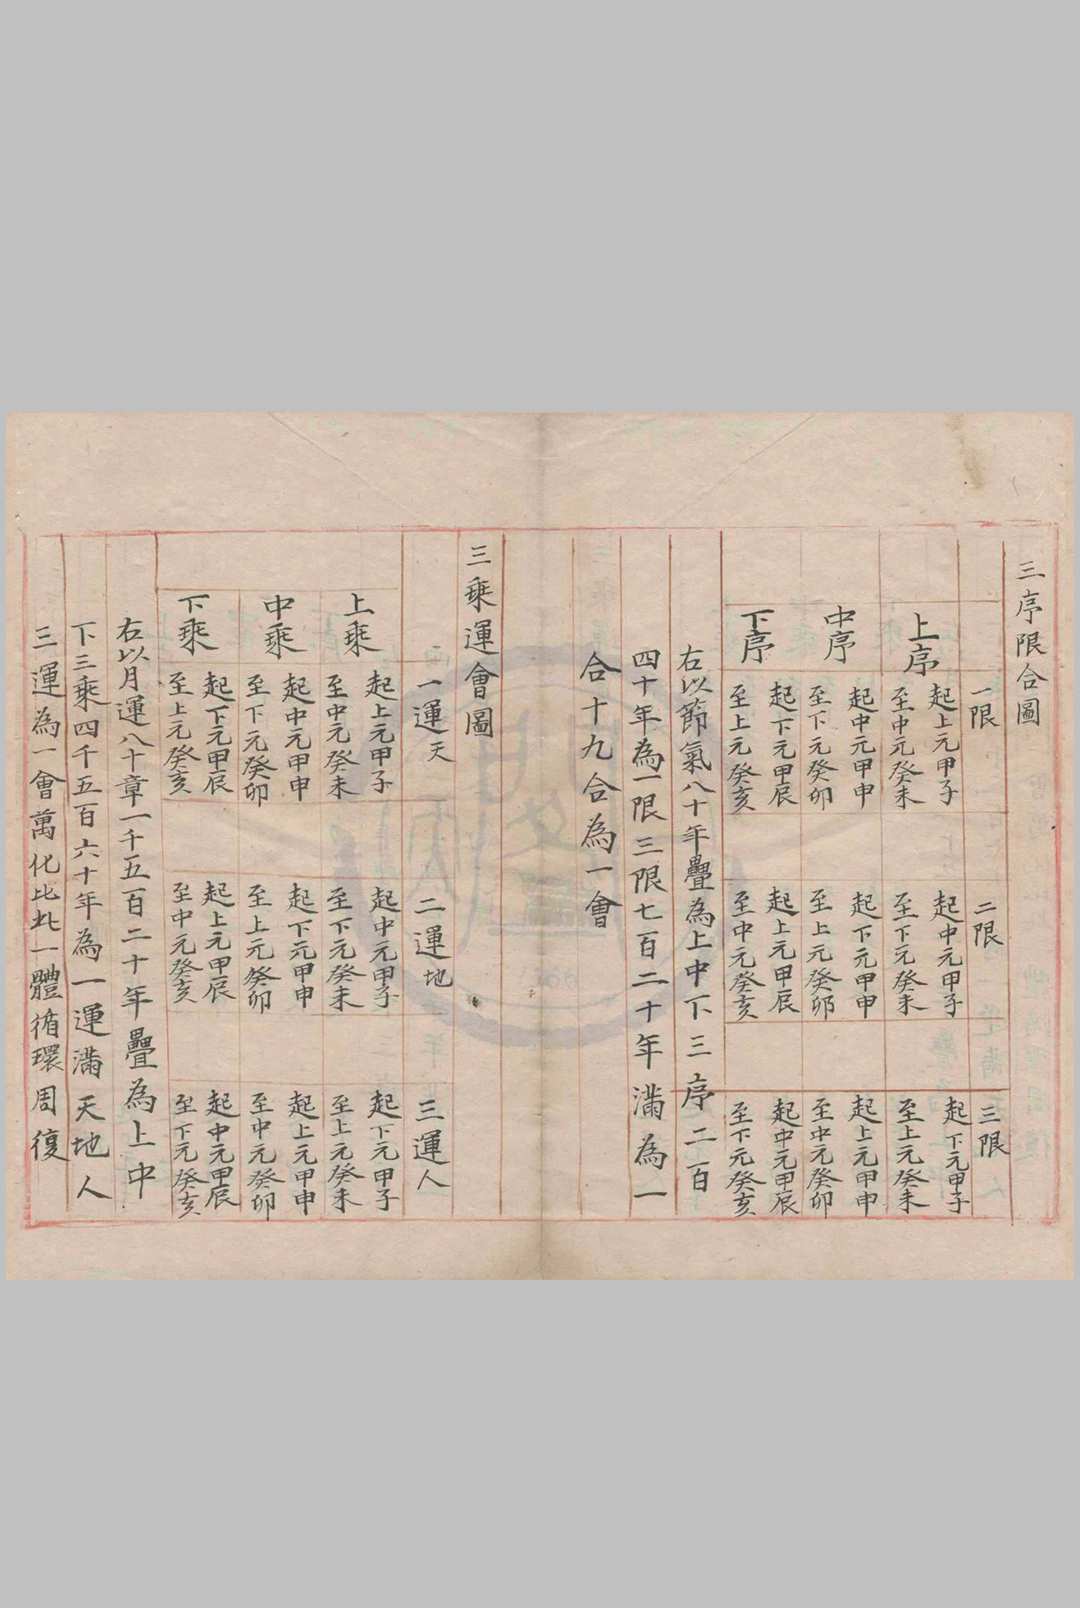 三序限合圖
一限
二限
三限
上序
起上元甲子
至中元癸未
起中元甲子
至下元癸未
起下元甲子
至上元癸未
中序
起中元甲申
至下元癸卯
起下元甲申
至上元癸卯
起上元甲申
至中元癸卯
下序
起下元甲辰
至上元癸亥
起上元甲辰
至中元癸亥
起中元甲辰
至下元癸亥
右以節氣八十年疊為上中下三序二百
四十年為一限三限七百二十年滿為一
合十九合為一會
三乘運會圖
一運天
二運地
三運人
上乘
起上元甲子
至中元癸未
起中元甲子
至下元癸未
起下元甲子
至上元癸未
中乘
起中元甲申
至下元癸卯
起下元甲申
至上元癸卯
起上元甲申
至中元癸卯
下乘
起下元甲辰
至上元癸亥
起上元甲辰
至中元癸亥
起中元甲辰
至下元癸亥
右以月運八十章一千五百二十年疊為上中
下三乘四千五百六十年為一運滿天地人
三運為一會萬化比此一體循環周復